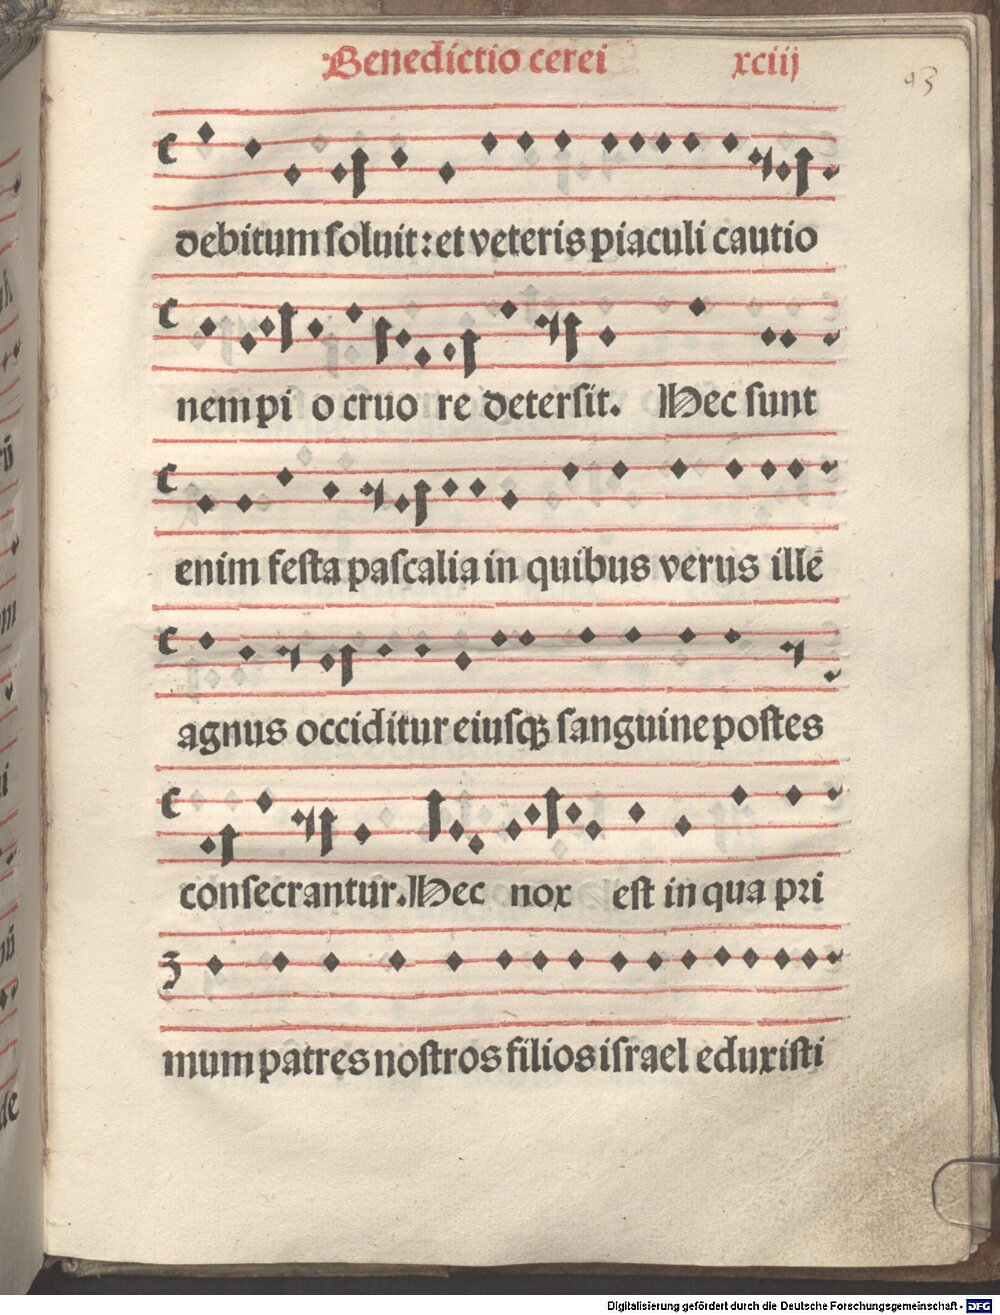 Benedictio cerei xciij
93
debitum ſoluit: et veteris piaculi cautio
nem pi o cruo re deterſit. Hec ſunt
enim feſta paſcalia in quibus verus ille
agnus occiditur eiuſqꝫ ſanguine poſtes
conſecrantur. Hec nox eſt in qua pꝛi
mum patres noſtros filios iſrael eduxiſti
Digitalisierung gefördert durch die Deutsche Forschungsgemeinschaft - DFG